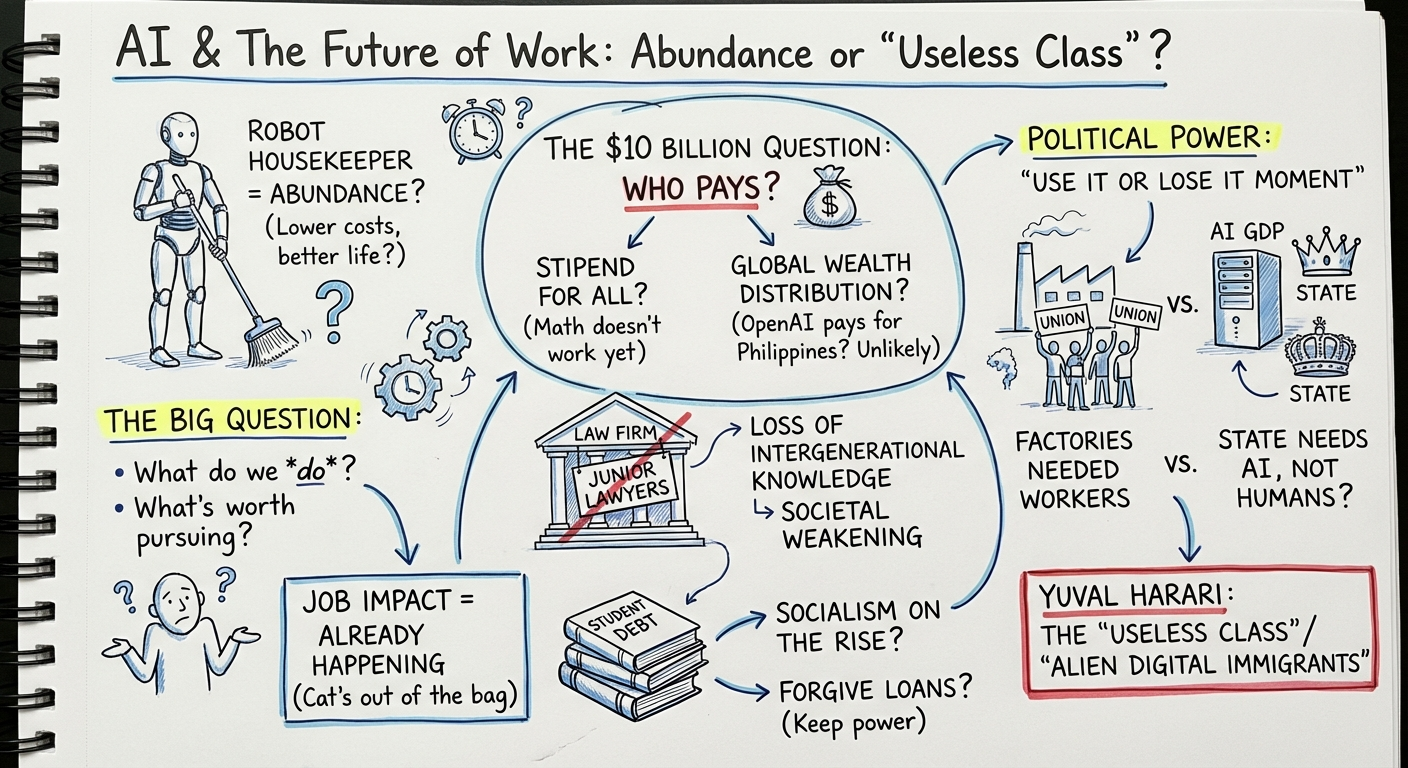 AI & The Future of Work: Abundance or "Useless Class"?
ROBOT
HOUSEKEEPER
= ABUNDANCE?
(Lower costs,
better life?)
?
?
THE BIG QUESTION:
• What do we *do*?
• What's worth
pursuing?
? ?
JOB IMPACT =
ALREADY
HAPPENING
(Cat's out of the bag)
THE $10 BILLION QUESTION:
WHO PAYS?
$
STIPEND
FOR ALL?
(Math doesn't
work yet)
GLOBAL WEALTH
DISTRIBUTION?
(OpenAI pays for
Philippines? Unlikely)
LAW FIRM
JUNIOR
LAWYERS
LOSS OF
INTERGENERATIONAL
KNOWLEDGE
SOCIETAL
WEAKENING
STUDENT
DEBT
SOCIALISM ON
THE RISE?
FORGIVE LOANS?
(Keep power)
POLITICAL POWER:
"USE IT OR LOSE IT MOMENT"
UNION
UNION
VS.
AI GDP
STATE
STATE
FACTORIES
NEEDED
WORKERS
VS.
STATE NEEDS
AI, NOT
HUMANS?
YUVAL HARARI:
THE "USELESS CLASS"/
"ALIEN DIGITAL IMMIGRANTS"